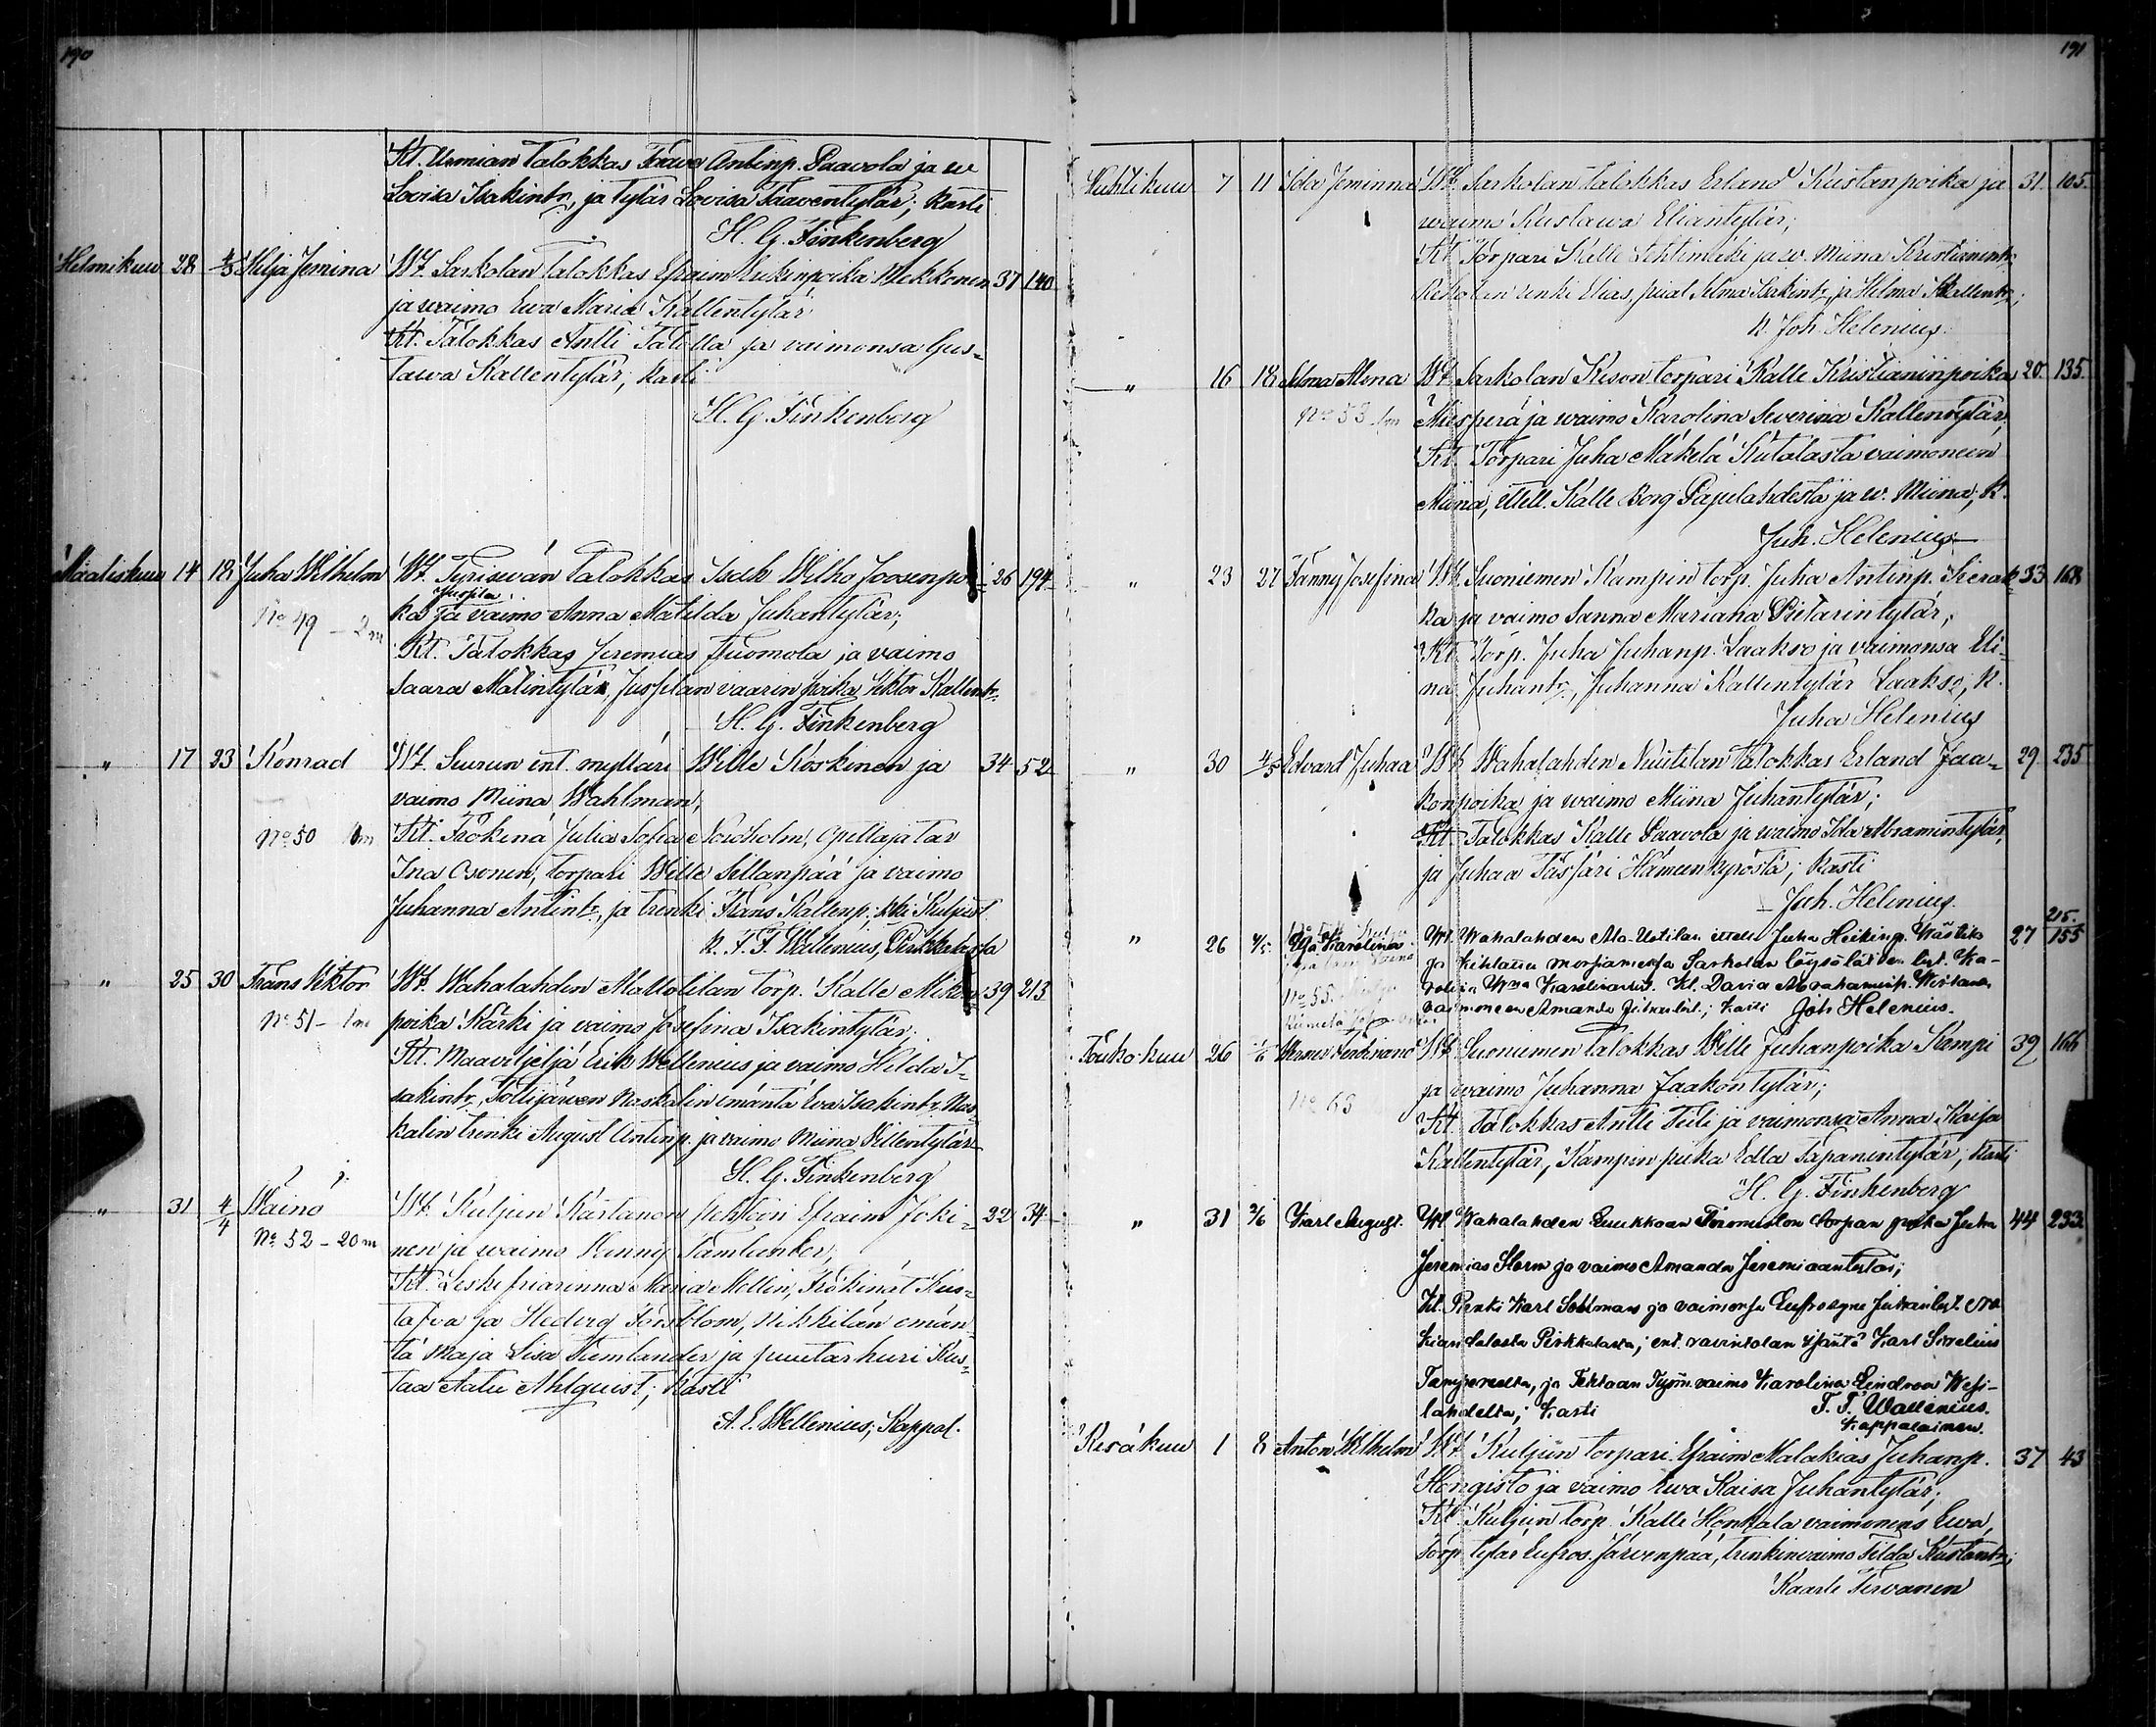 190
Kt. Urmian Talokkas Taavo Antinp. Paavola ja w
Lovisa Isakintr, ja tytär Lovisa Taaventytär; kasti
H. G. Finkenberg
Helmikuu 28 4/3 Hilja Jemina Wt. Sarkolan Talokkas Efraim Eerikinpoika Wekkonen 37 140
ja waimo Ewa Maria Kallentytär
Kt. Talokkas Antti Talolla ja vaimonsa Gus-
tawa Kallentytär; kasti
H. G. Finkenberg
Maaliskuu 14 18 Juha Wilhelm Wt. Tyrisevän Talokkas Isak Wilho Joosenpoi- 26 194
Jussila
ka ja vaimo Anna Matilda Juhantytär;
No 49 - 2m
Kt. Talokkas Jeremias Tuomola ja vaimo
Saara Matintytär, Jussilan vaarin poika Viktor Kallentr.
H. G. Finkenberg
" 17 23 Konrad Wt. Suurun ent. mylläri Wille Koskinen ja 34 52
vaimo Miina Wahlman;
No 50 Kt. Frökinä Julia Sofia Nordholm, Opettajatar
Ina Osonen, torpari Wille Sillanpää ja vaimo
Juhanna Antintr, ja trenki Frans Kallenp.; kki Kuljust.
k. F. F. Wallenius, Pirkkalassa
" 25 30 Frans Viktor Wt. Wahalahden Mattotilan torp. Kalle Mikon 39 213
No 51 - 1m poika Kärki ja vaimo Josefina Isakintytär;
Kt. Maaviljeljä Erik Wellenius ja vaimo Hilda I-
sakintr, Tottijärwen Naskalin emäntä Eva Isakintr, Nas-
kalin trenki August Antinp. ja vaimo Miina Willentytär
H. G. Finkenberg
" 31 4/4 Wäinö Wt. Kuljun Kartanon pehtori Efraim Joki- 22 34
No 52 - 20m nen ja waimo Fenny Tamlander;
Kt. Leskifriarinna Maria Mellin, Frökinät Kus-
tafva ja Hedvig Forsblom, Nikkilän emän-
tä Maja Lisa Tumlander ja puutarhuri Kus-
taa Aatu Ahlquist; kasti
A. E. Wellenius, Kappal.
191
Huhtikuu 7 11 Ida Jeminna Wt. Sarkolan talokkas Erland Kustanpoika ja 31. 105.
waimo Kustawa Eliantytär;
Kt. Torpari Kalle Lehtimäki ja w. Miina Kristianintr
Reholan renki Elias, piiat Selma Isakintr, ja Hilma Kallentr;
k. Joh. Helenius.
" 16 18 Selma Alena Wt. Sarkolan Keson torpari Kalle Kristianinpoika 20. 135.
No 53 1m Miisperä ja waimo Karolina Severina Kallentytär
Kt. Torpari Juha Mäkelä Kutalasta vaimoneen
Miina, ittell. Kalle Borg Pajulahdesta ja w. Miina; k.
Juh. Helenius
" 23 27 Fanny Josefina Wt. Suoniemen Kampin torp. Juha Antinp. Kierak- 33 168
ka ja vaimo Sanna Mariana Pietarintytär,
Kt Torp. Juha Juhanp. Laakso ja vaimonsa Eli-
na Juhantr, Juhanna Kallentytär Laakso; k.
Juha Helenius
" 30 4/5 Edvard Juhaa Wt Wahalahden Niittilän talokkas Erland Jaa- 29 235
konpoika ja waimo Miina Juhantytär;
Kt. Talokkas Kalle Paavola ja waimo Ida Abramintytär,
ja Juhaa Tässäri Hämeenkyröstä; kasti
Joh. Helenius.
" 26 4/5 Karolina Wt. Wahalahden Ala-Uotilan ittell. Juha Heikinp. Wästilä 27 215. 155
ja kihlattu morsiamensa Sarkolan löysöläinen
No 55. Kt. David Abrahaminp.
vaimoneen Amanda; kasti Joh Helenius.
Toukokuu 26 1/6 Werner Ferdinand Wt. Suoniemen Talokkas Wille Juhanpoika Kampi 39 166
ja waimo Juhanna Jaakontytär;
No 63
Kt. Talokkas Antti Tiili ja vaimonsa Anna Kaisa
Kallentytär, Kampin piika Edla Tapanintytär, kasti
H. G. Finkenberg
" 31 2/6 Karl August. Wt. Wahalahden Luukkaan torpan poika Juha 44 233.
Jeremias Storm ja vaimo Amanda Jeremiaantytär;
Kt. Renki Karl Sohlman ja vaimonsa Eufrosyne
Pirkkalasta; ent. ravintolan isäntä Karl Sirelius
Tampereelta, ja vaimo Karolina Lindroos Wesi-
lahdelta; kasti F. F. Wallenius.
Kappalainen.
Kesäkuu 1 8 Anton Wilhelm Wt. Kuljun torpari Efraim Malakias Juhanp. 37 43
Hongisto ja vaimo Ewa Kaisa Juhantytär;
Kt. Kuljun torp. Kalle Honkala vaimonens Ewa,
Torp. tytär Eufros. Järvenpää, trenkinvaimo Tilda Kustantr;
Kaarle Tervanen